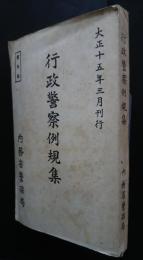 大正十五年三月刊行
行政警察例規集
内務省警保局
行政警察例規集
内務省警保局